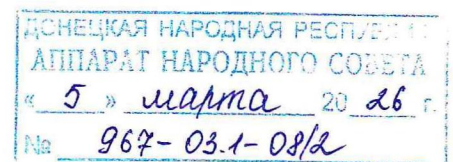 ДОНЕЦКАЯ НАРОДНАЯ
АППАРАТ НАРОДНОГО СОВЕТА
« 5 » марта 20 26 г.
№ 967-03.1-08/2